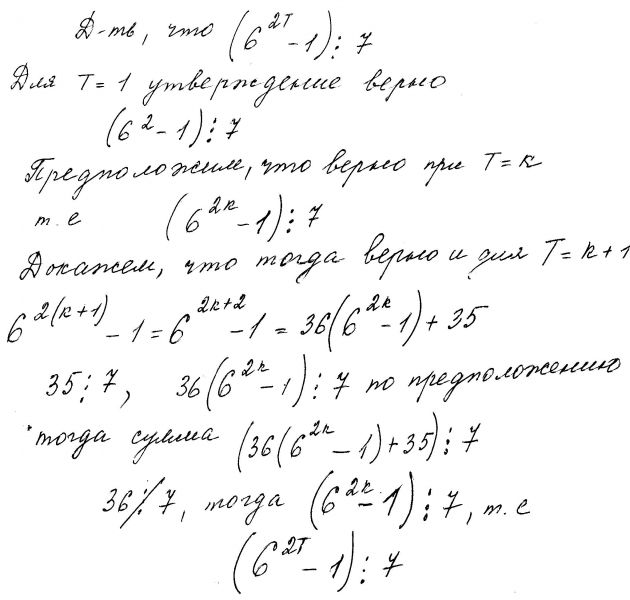 Д-ть, что (6^{2T} - 1) ⋮ 7
Для T = 1 утверждение верно
(6^2 - 1) ⋮ 7
Предположим, что верно при T = k
т. е (6^{2k} - 1) ⋮ 7
Докажем, что тогда верно и для T = k + 1
6^{2(k+1)} - 1 = 6^{2k+2} - 1 = 36(6^{2k} - 1) + 35
35 ⋮ 7, 36(6^{2k} - 1) ⋮ 7 по предположению
тогда сумма (36(6^{2k} - 1) + 35) ⋮ 7
36 ⋮̸ 7, тогда (6^{2k} - 1) ⋮ 7, т. е
(6^{2T} - 1) ⋮ 7